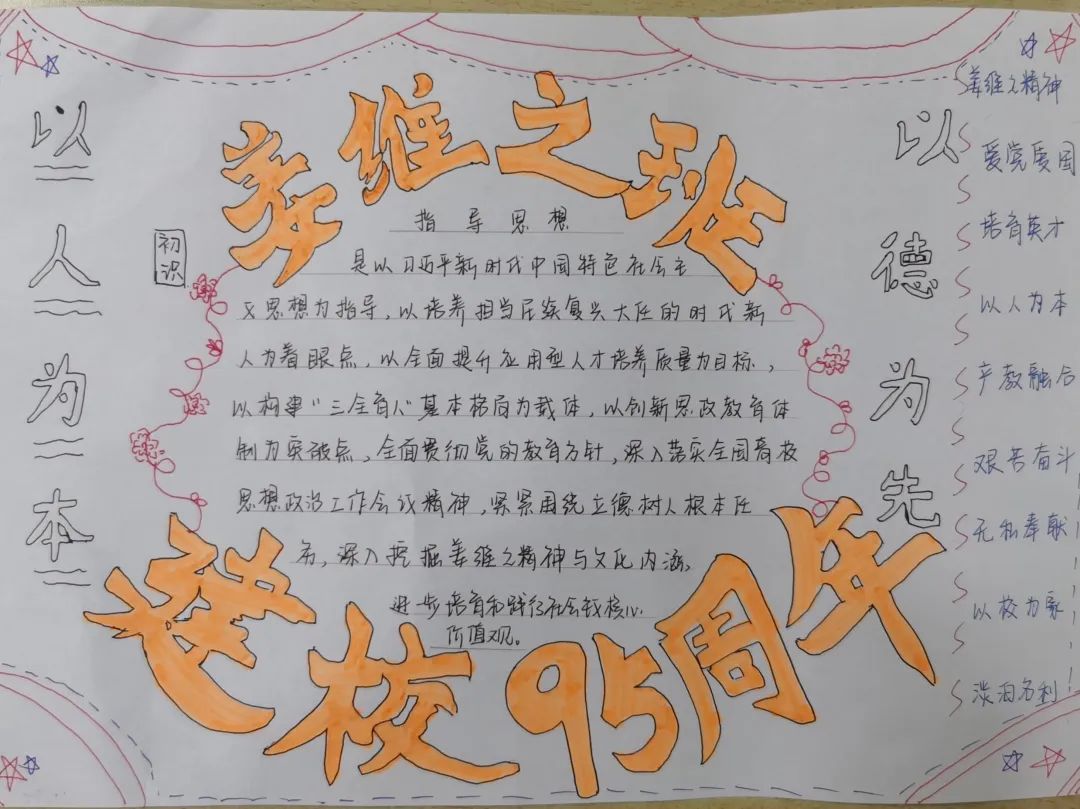 姜维之班
以人为本
初识
指导思想
是以习近平新时代中国特色社会主
义思想为指导，以培养担当民族复兴大任的时代新
人为着眼点，以全面提升应用型人才培养质量为目标，
以构建“三全育人”基本格局为载体，以创新思政教育体
制为突破点，全面贯彻党的教育方针，深入落实全国高校
思想政治工作会议精神，紧紧围绕立德树人根本任
务，深入挖掘姜维之精神与文化内涵，
进步培育和践行社会核心
价值观。
建校95周年
以德为先
姜维之精神
爱党爱国
培育英才
以人为本
产教融合
艰苦奋斗
无私奉献
以校为家
淡泊名利！